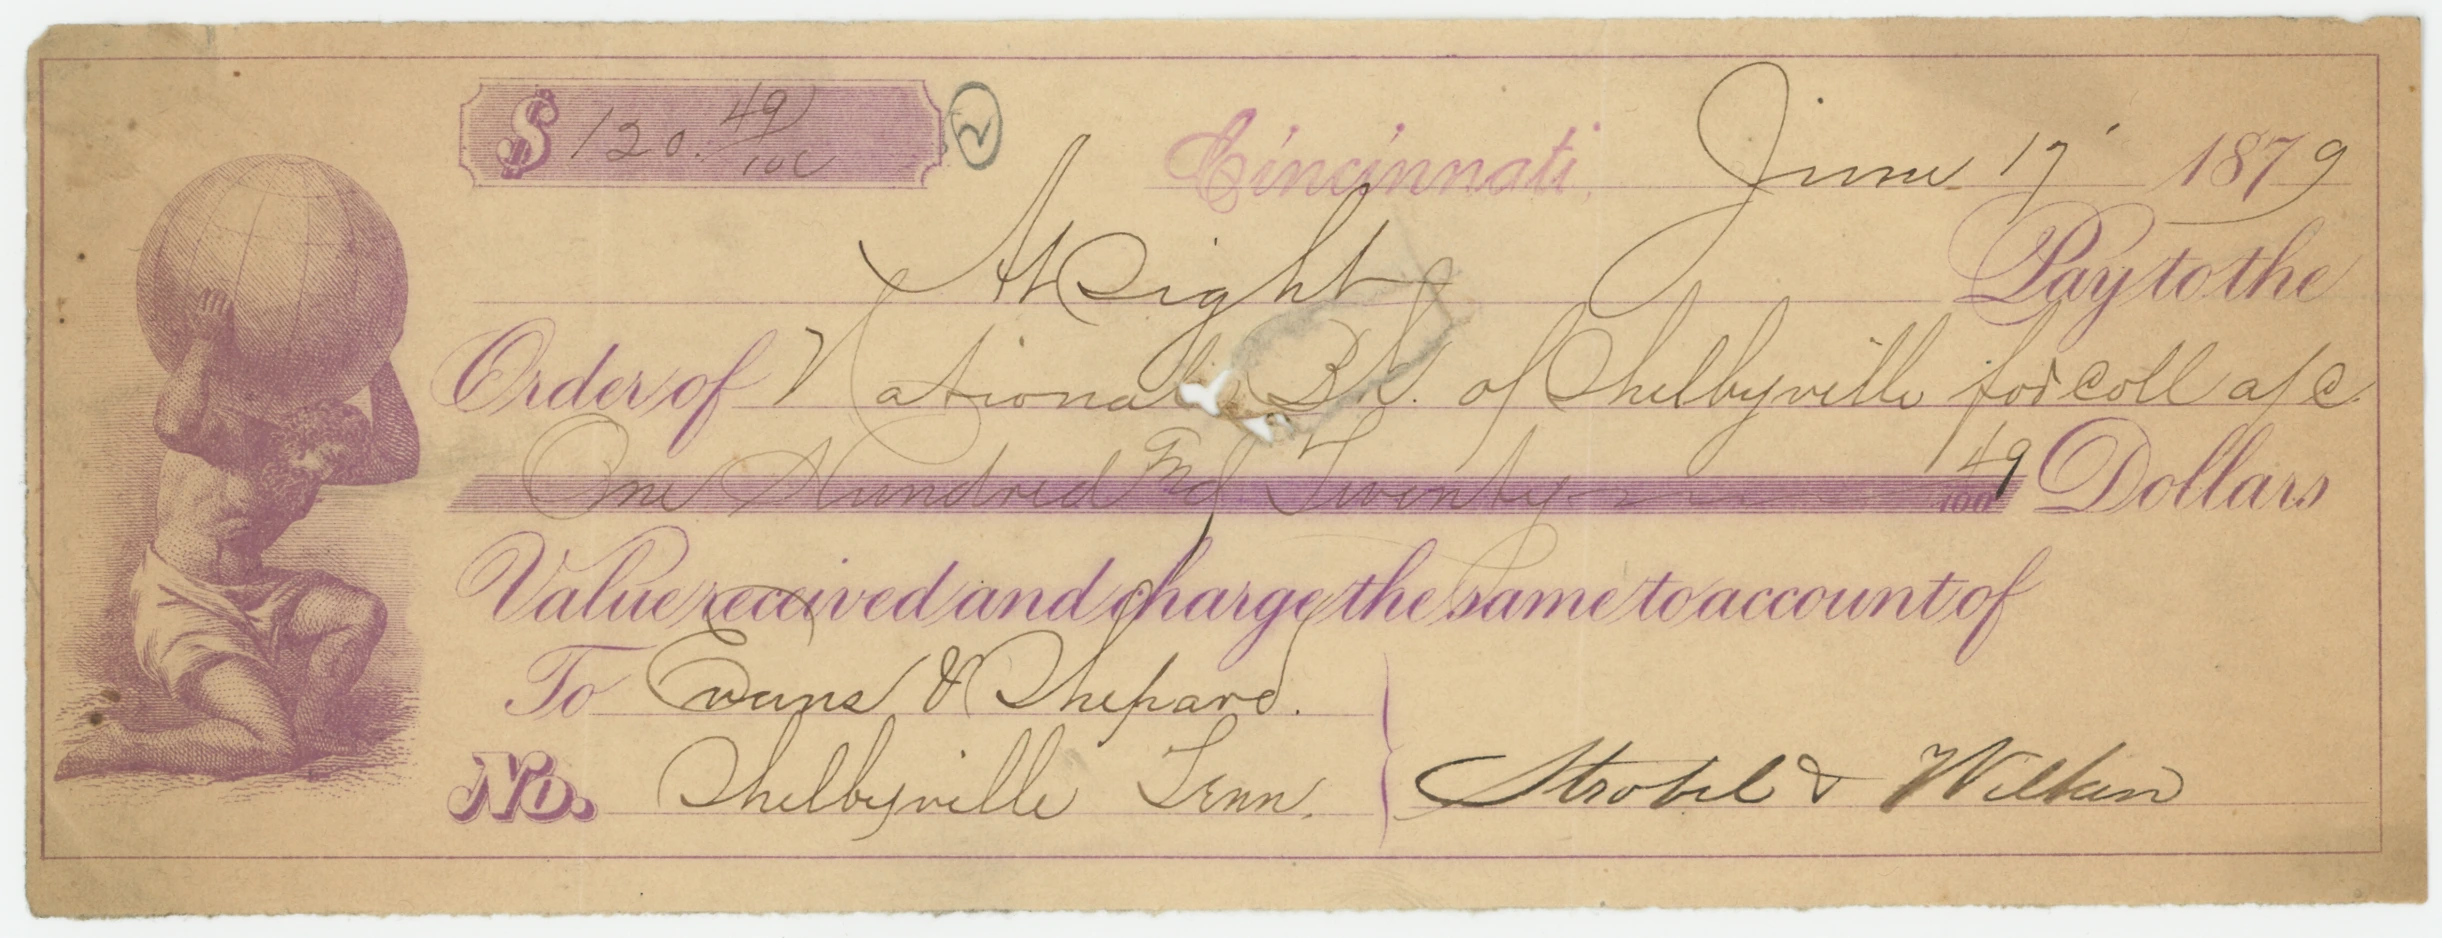 $ 120. 49/100 2
Cincinnati, June 17 1879
At Sight Pay to the
Order of National Bk. of Shelbyville for coll a/c.
One Hundred and Twenty 49/100 Dollars
Value received and charge the same to account of
To Evans & Shepard.
No. Shelbyville Tenn.
Strobel & Wilken